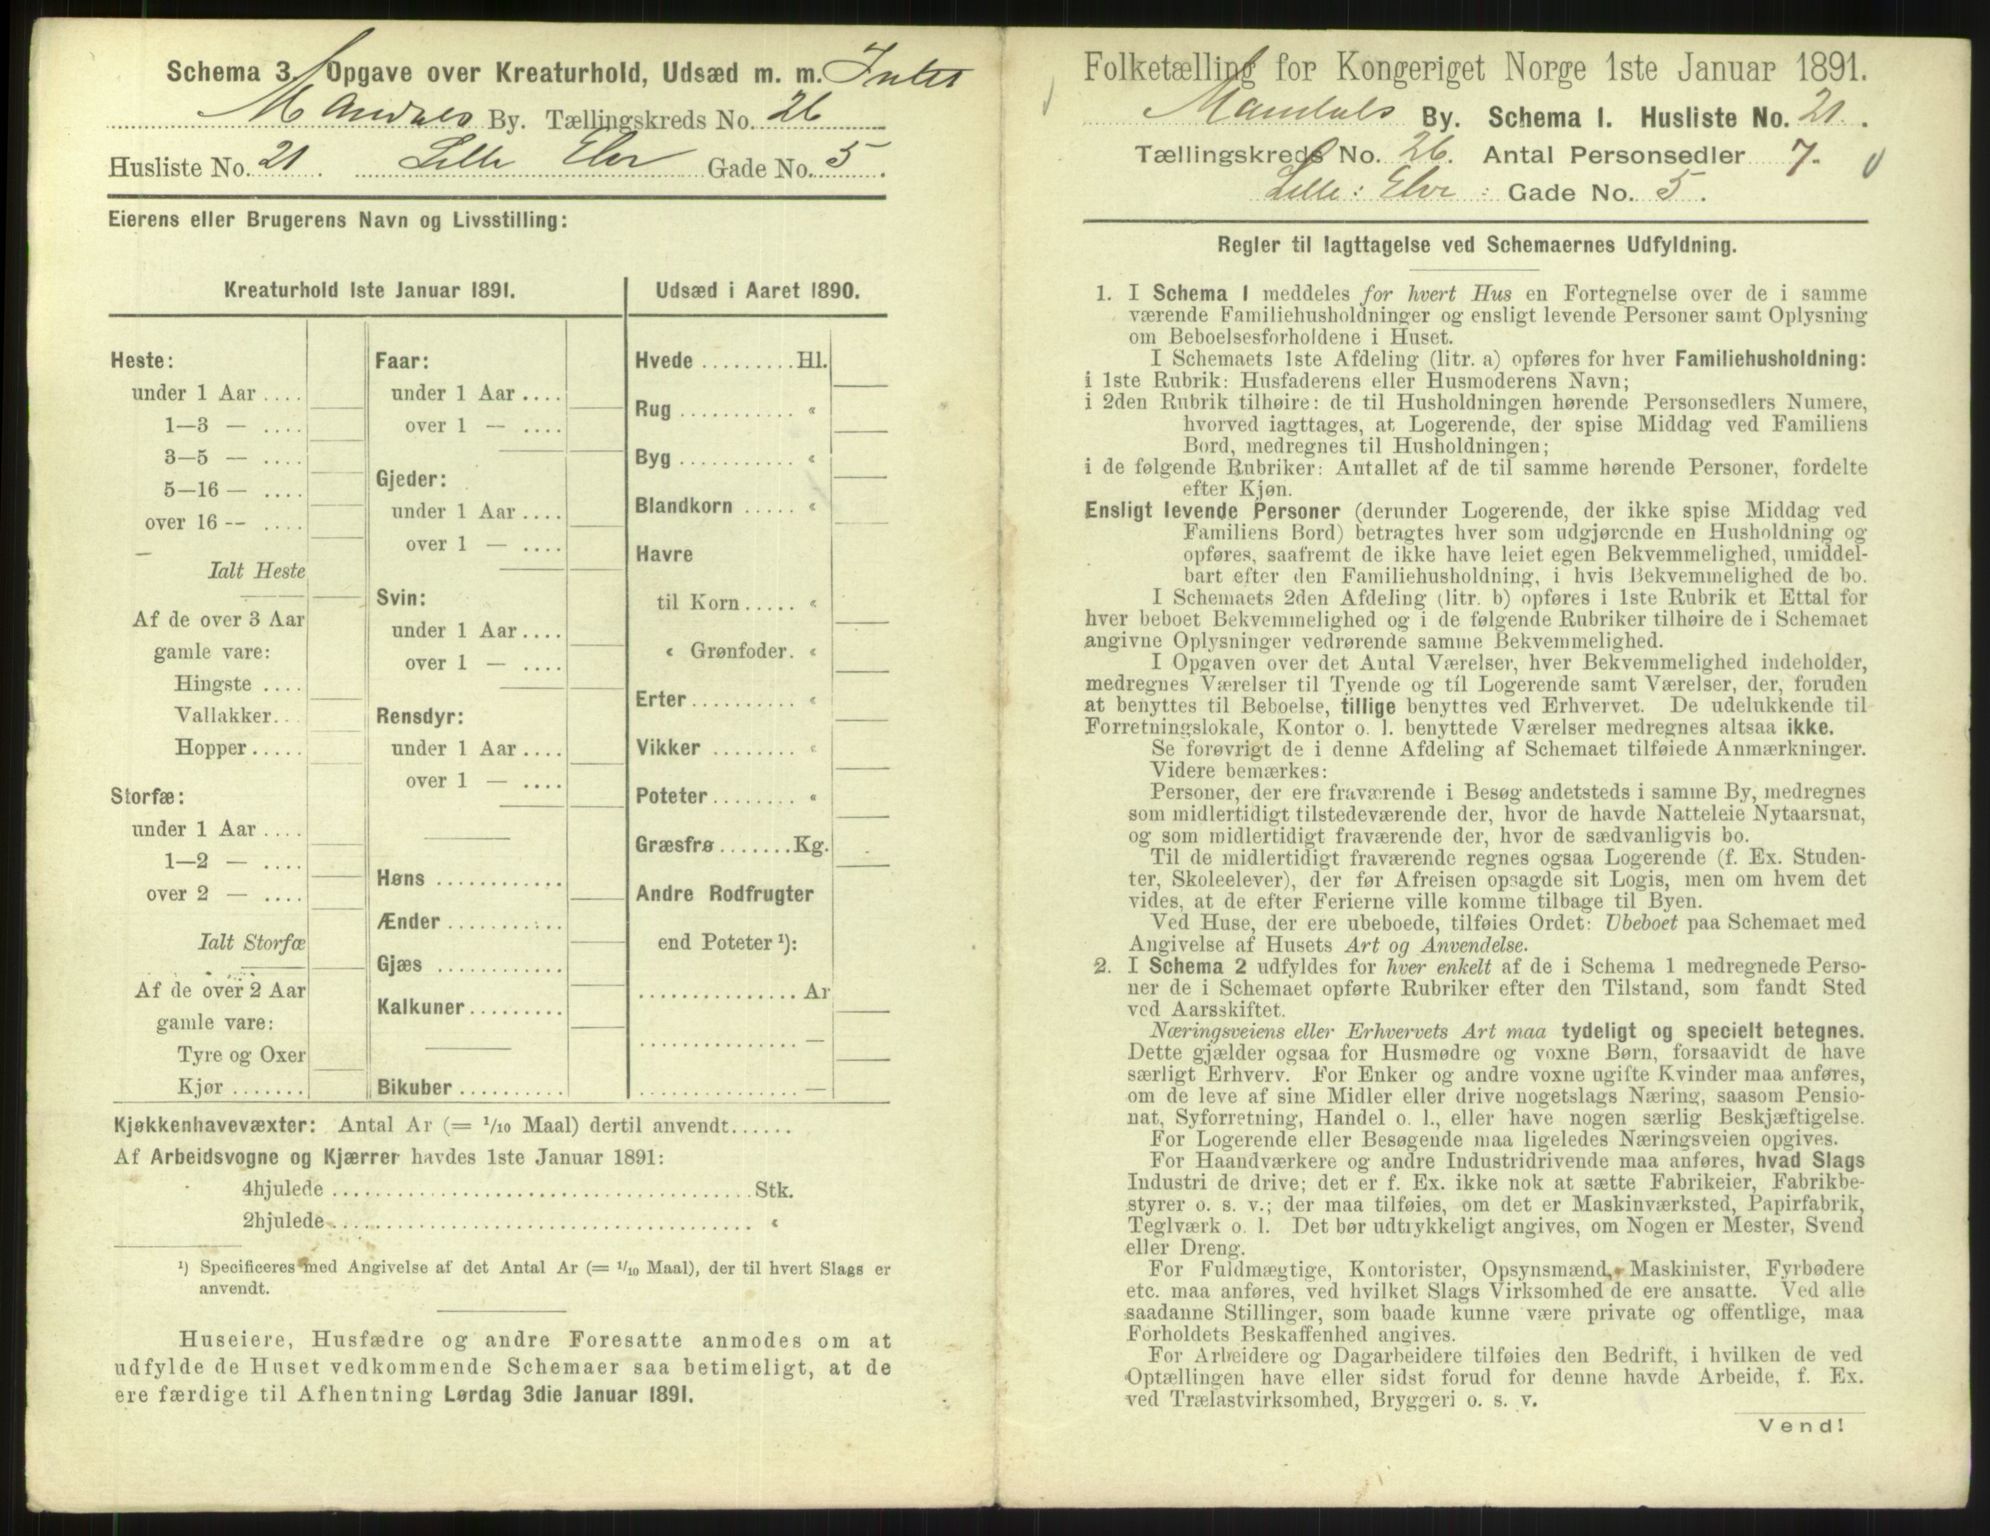 Schema 3. Opgave over Kreaturhold, Udsæd m. m. Intet
Mandals By. Tællingskreds No. 26
Husliste No. 21. Lille Elv Gade No. 5.
Eierens eller Brugerens Navn og Livsstilling:
Kreaturhold 1ste Januar 1891.
Heste:
under 1 Aar ....
1—3 — ....
3—5 — ....
5—16 — ....
over 16 -- ....
Ialt Heste
Af de over 3 Aar
gamle vare:
Hingste ....
Vallakker...
Hopper.....
Storfæ:
under 1 Aar ....
1—2 — ....
over 2 — ....
Ialt Storfæ
Af de over 2 Aar
gamle vare:
Tyre og Oxer
Kjør .......
Faar:
under 1 Aar ....
over 1 — ....
Gjeder:
under 1 Aar ....
over 1 — ....
Svin:
under 1 Aar ....
over 1 — ....
Rensdyr:
under 1 Aar ....
over 1 — ....
Høns ............
Ænder ...........
Gjæs ............
Kalkuner.........
Bikuber ..........
Udsæd i Aaret 1890.
Hvede .........Hl.
Rug ........... «
Byg ........... «
Blandkorn ..... «
Havre
til Korn..... «
« Grønfoder. «
Erter.......... «
Vikker ........ «
Poteter........ «
Græsfrø.......Kg.
Andre Rodfrugter
end Poteter ¹):
...............Ar
............... —
............... —
Kjøkkenhavevæxter: Antal Ar (= 1/10 Maal) dertil anvendt......
Af Arbeidsvogne og Kjærrer havdes 1ste Januar 1891:
4hjulede ........................................Stk.
2hjulede ........................................ «
¹) Specificeres med Angivelse af det Antal Ar (= 1/10 Maal), der til hvert Slags er
anvendt.
Huseiere, Husfædre og andre Foresatte anmodes om at
udfylde de Huset vedkommende Schemaer saa betimeligt, at de
ere færdige til Afhentning Lørdag 3die Januar 1891.
Folketælling for Kongeriget Norge 1ste Januar 1891.
Mandals By. Schema I. Husliste No. 21.
Tællingskreds No. 26. Antal Personsedler 7.
Lille: Elve: Gade No. 5.
Regler til Iagttagelse ved Schemaernes Udfyldning.
1. I Schema 1 meddeles for hvert Hus en Fortegnelse over de i samme
værende Familiehusholdninger og ensligt levende Personer samt Oplysning
om Beboelsesforholdene i Huset.
I Schemaets 1ste Afdeling (litr. a) opføres for hver Familiehusholdning:
i 1ste Rubrik: Husfaderens eller Husmoderens Navn;
i 2den Rubrik tilhøire: de til Husholdningen hørende Personsedlers Numere,
hvorved iagttages, at Logerende, der spise Middag ved Familiens
Bord, medregnes til Husholdningen;
i de følgende Rubriker: Antallet af de til samme hørende Personer, fordelte
efter Kjøn.
Ensligt levende Personer (derunder Logerende, der ikke spise Middag ved
Familiens Bord) betragtes hver som udgjørende en Husholdning og
opføres, saafremt de ikke have leiet egen Bekvemmelighed, umiddel-
bart efter den Familiehusholdning, i hvis Bekvemmelighed de bo.
I Schemaets 2den Afdeling (litr. b) opføres i 1ste Rubrik et Ettal for
hver beboet Bekvemmelighed og i de følgende Rubriker tilhøire de i Schemaet
angivne Oplysninger vedrørende samme Bekvemmelighed.
I Opgaven over det Antal Værelser, hver Bekvemmelighed indeholder,
medregnes Værelser til Tyende og til Logerende samt Værelser, der, foruden
at benyttes til Beboelse, tillige benyttes ved Erhvervet. De udelukkende til
Forretningslokale, Kontor o. l. benyttede Værelser medregnes altsaa ikke.
Se forøvrigt de i denne Afdeling af Schemaet tilføiede Anmærkninger.
Videre bemærkes:
Personer, der ere fraværende i Besøg andetsteds i samme By, medregnes
som midlertidigt tilstedeværende der, hvor de havde Natteleie Nytaarsnat,
og som midlertidigt fraværende der, hvor de sædvanligvis bo.
Til de midlertidigt fraværende regnes ogsaa Logerende (f. Ex. Studen-
ter, Skoleelever), der før Afreisen opsagde sit Logis, men om hvem det
vides, at de efter Ferierne ville komme tilbage til Byen.
Ved Huse, der ere ubeboede, tilføies Ordet: Ubeboet paa Schemaet med
Angivelse af Husets Art og Anvendelse.
2. I Schema 2 udfyldes for hver enkelt af de i Schema 1 medregnede Perso-
ner de i Schemaet opførte Rubriker efter den Tilstand, som fandt Sted
ved Aarsskiftet.
Næringsveiens eller Erhvervets Art maa tydeligt og specielt betegnes.
Dette gjælder ogsaa for Husmødre og voxne Børn, forsaavidt de have
særligt Erhverv. For Enker og andre voxne ugifte Kvinder maa anføres,
om de leve af sine Midler eller drive nogetslags Næring, saasom Pensio-
nat, Syforretning, Handel o. l., eller have nogen særlig Beskjæftigelse.
For Logerende eller Besøgende maa ligeledes Næringsveien opgives.
For Haandværkere og andre Industridrivende maa anføres, hvad Slags
Industri de drive; det er f. Ex. ikke nok at sætte Fabrikeier, Fabrikbe-
styrer o. s. v.; der maa tilføies, om det er Maskinværksted, Papirfabrik,
Teglværk o. l. Det bør udtrykkeligt angives, om Nogen er Mester, Svend
eller Dreng.
For Fuldmægtige, Kontorister, Opsynsmænd, Maskinister, Fyrbødere
etc. maa anføres, ved hvilket Slags Virksomhed de ere ansatte. Ved alle
saadanne Stillinger, som baade kunne være private og offentlige, maa
Forholdets Beskaffenhed angives.
For Arbeidere og Dagarbeidere tilføies den Bedrift, i hvilken de ved
Optællingen have eller sidst forud for denne havde Arbeide, f. Ex.
ved Trælastvirksomhed, Bryggeri o. s. v.
Vend!